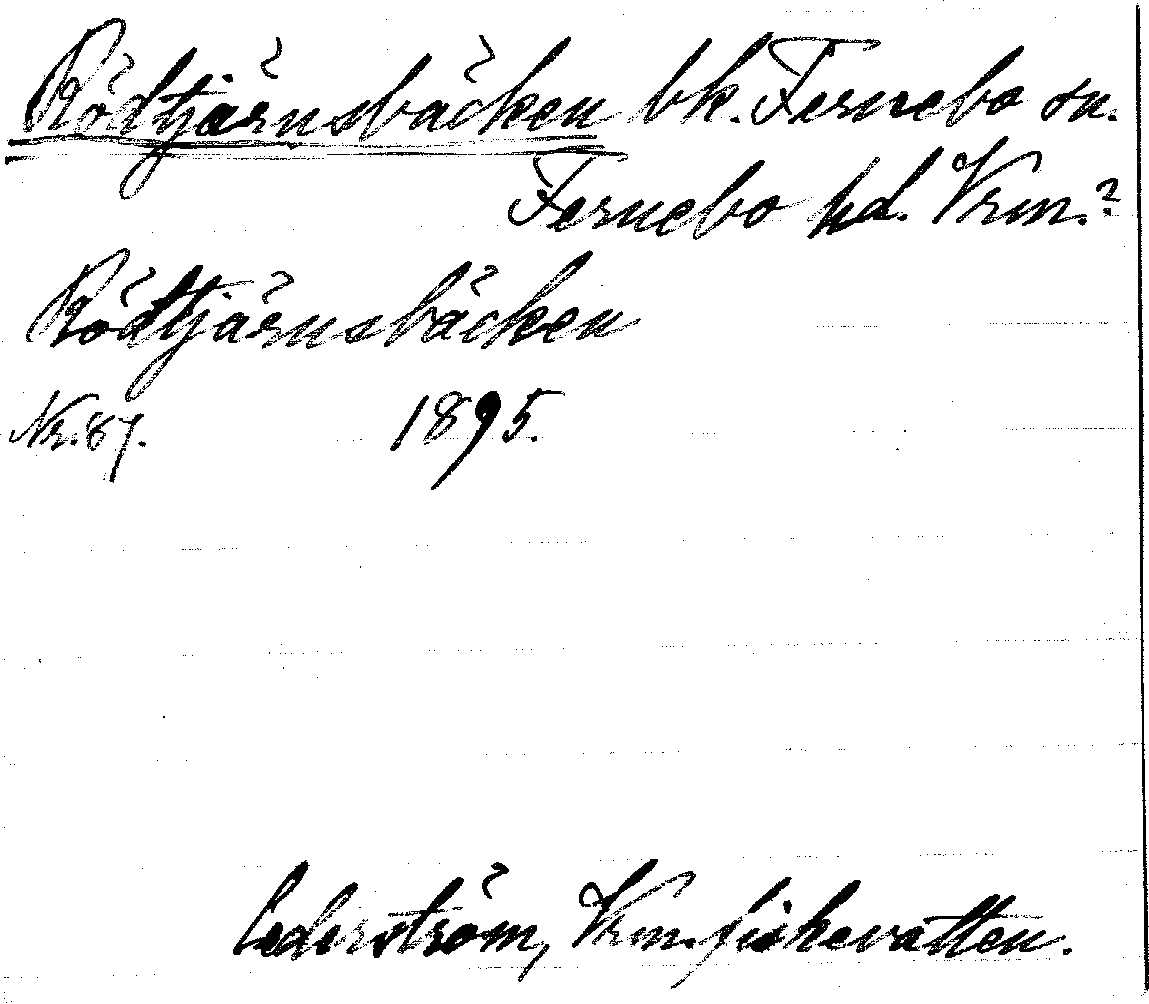 Rödtjärnsbäcken bk. Fernebo sn.
Fernebo hd. Vrm.?
Rödtjärnsbäcken
Nr. 87. 1895.
Cederström, Vrm. fiskevatten.